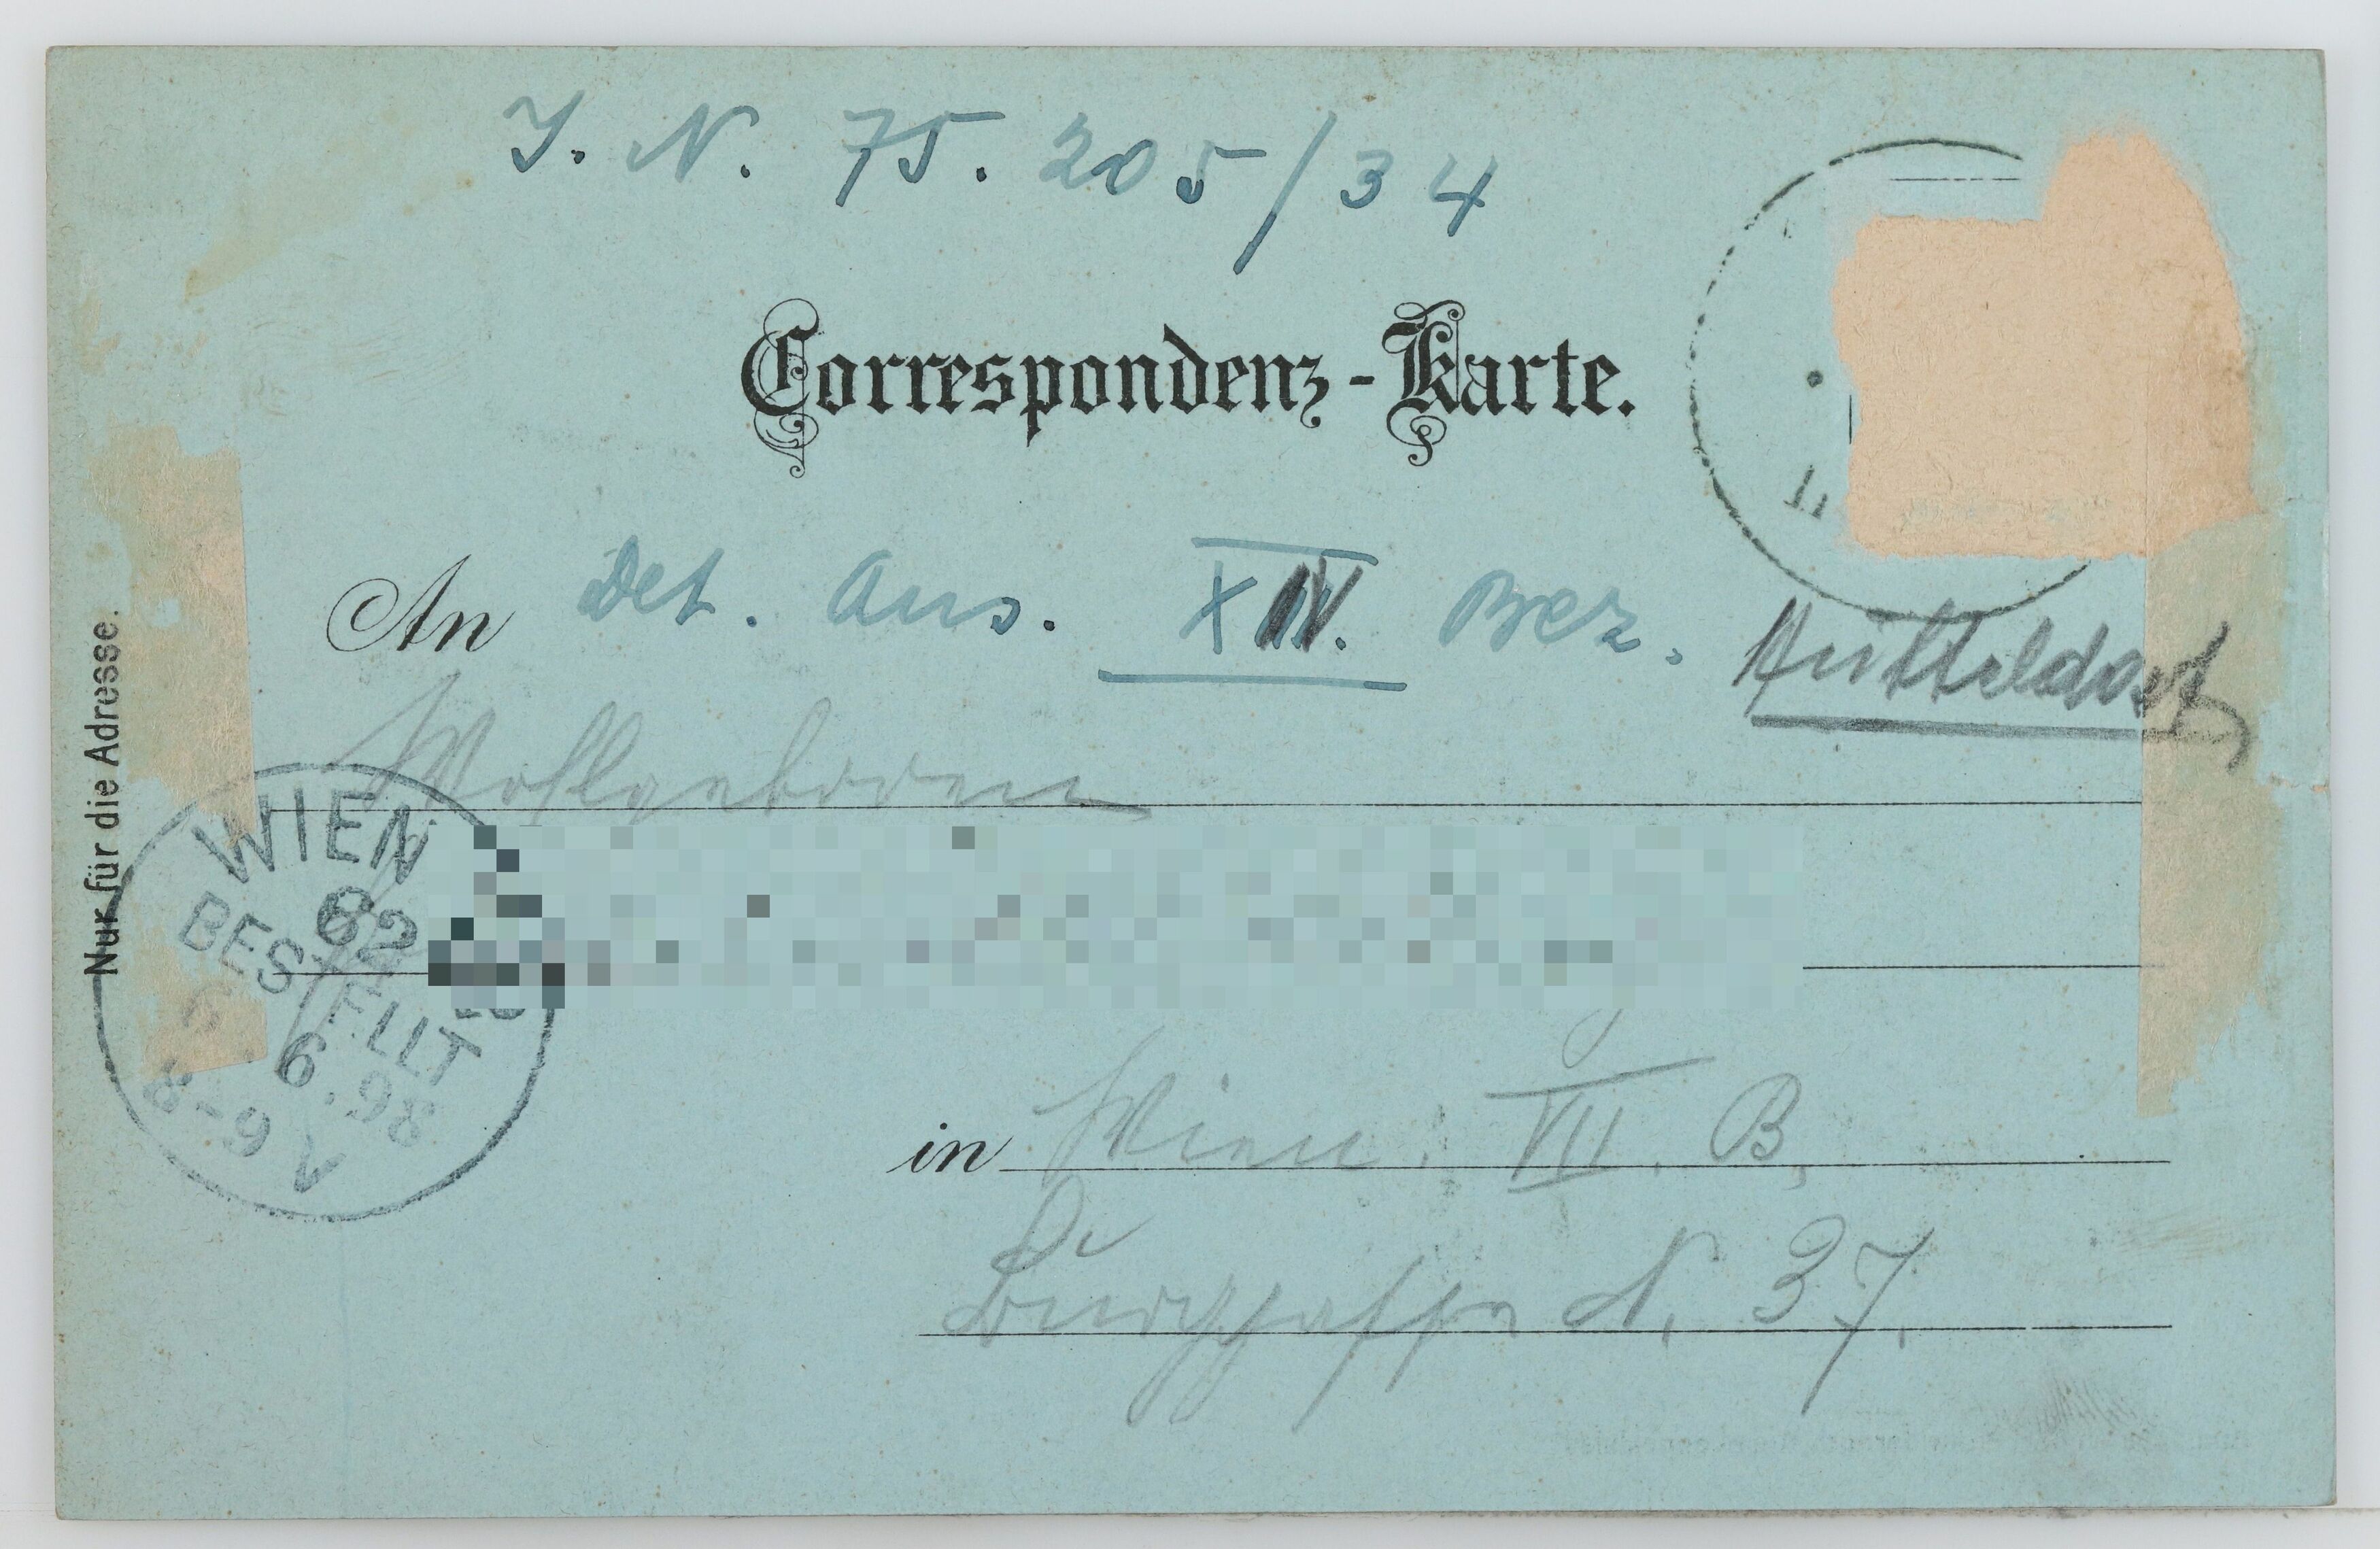 J. N. 75.205/34
Correspondenz-Karte.
An Det. Aus. XIV. Bez. Hütteldorf
Wohlgeboren
in Wien. VII. B,
Burggasse N. 37.
Nur für die Adresse.
WIEN
62
BESTELLT
6. 6. 98
8-9 V